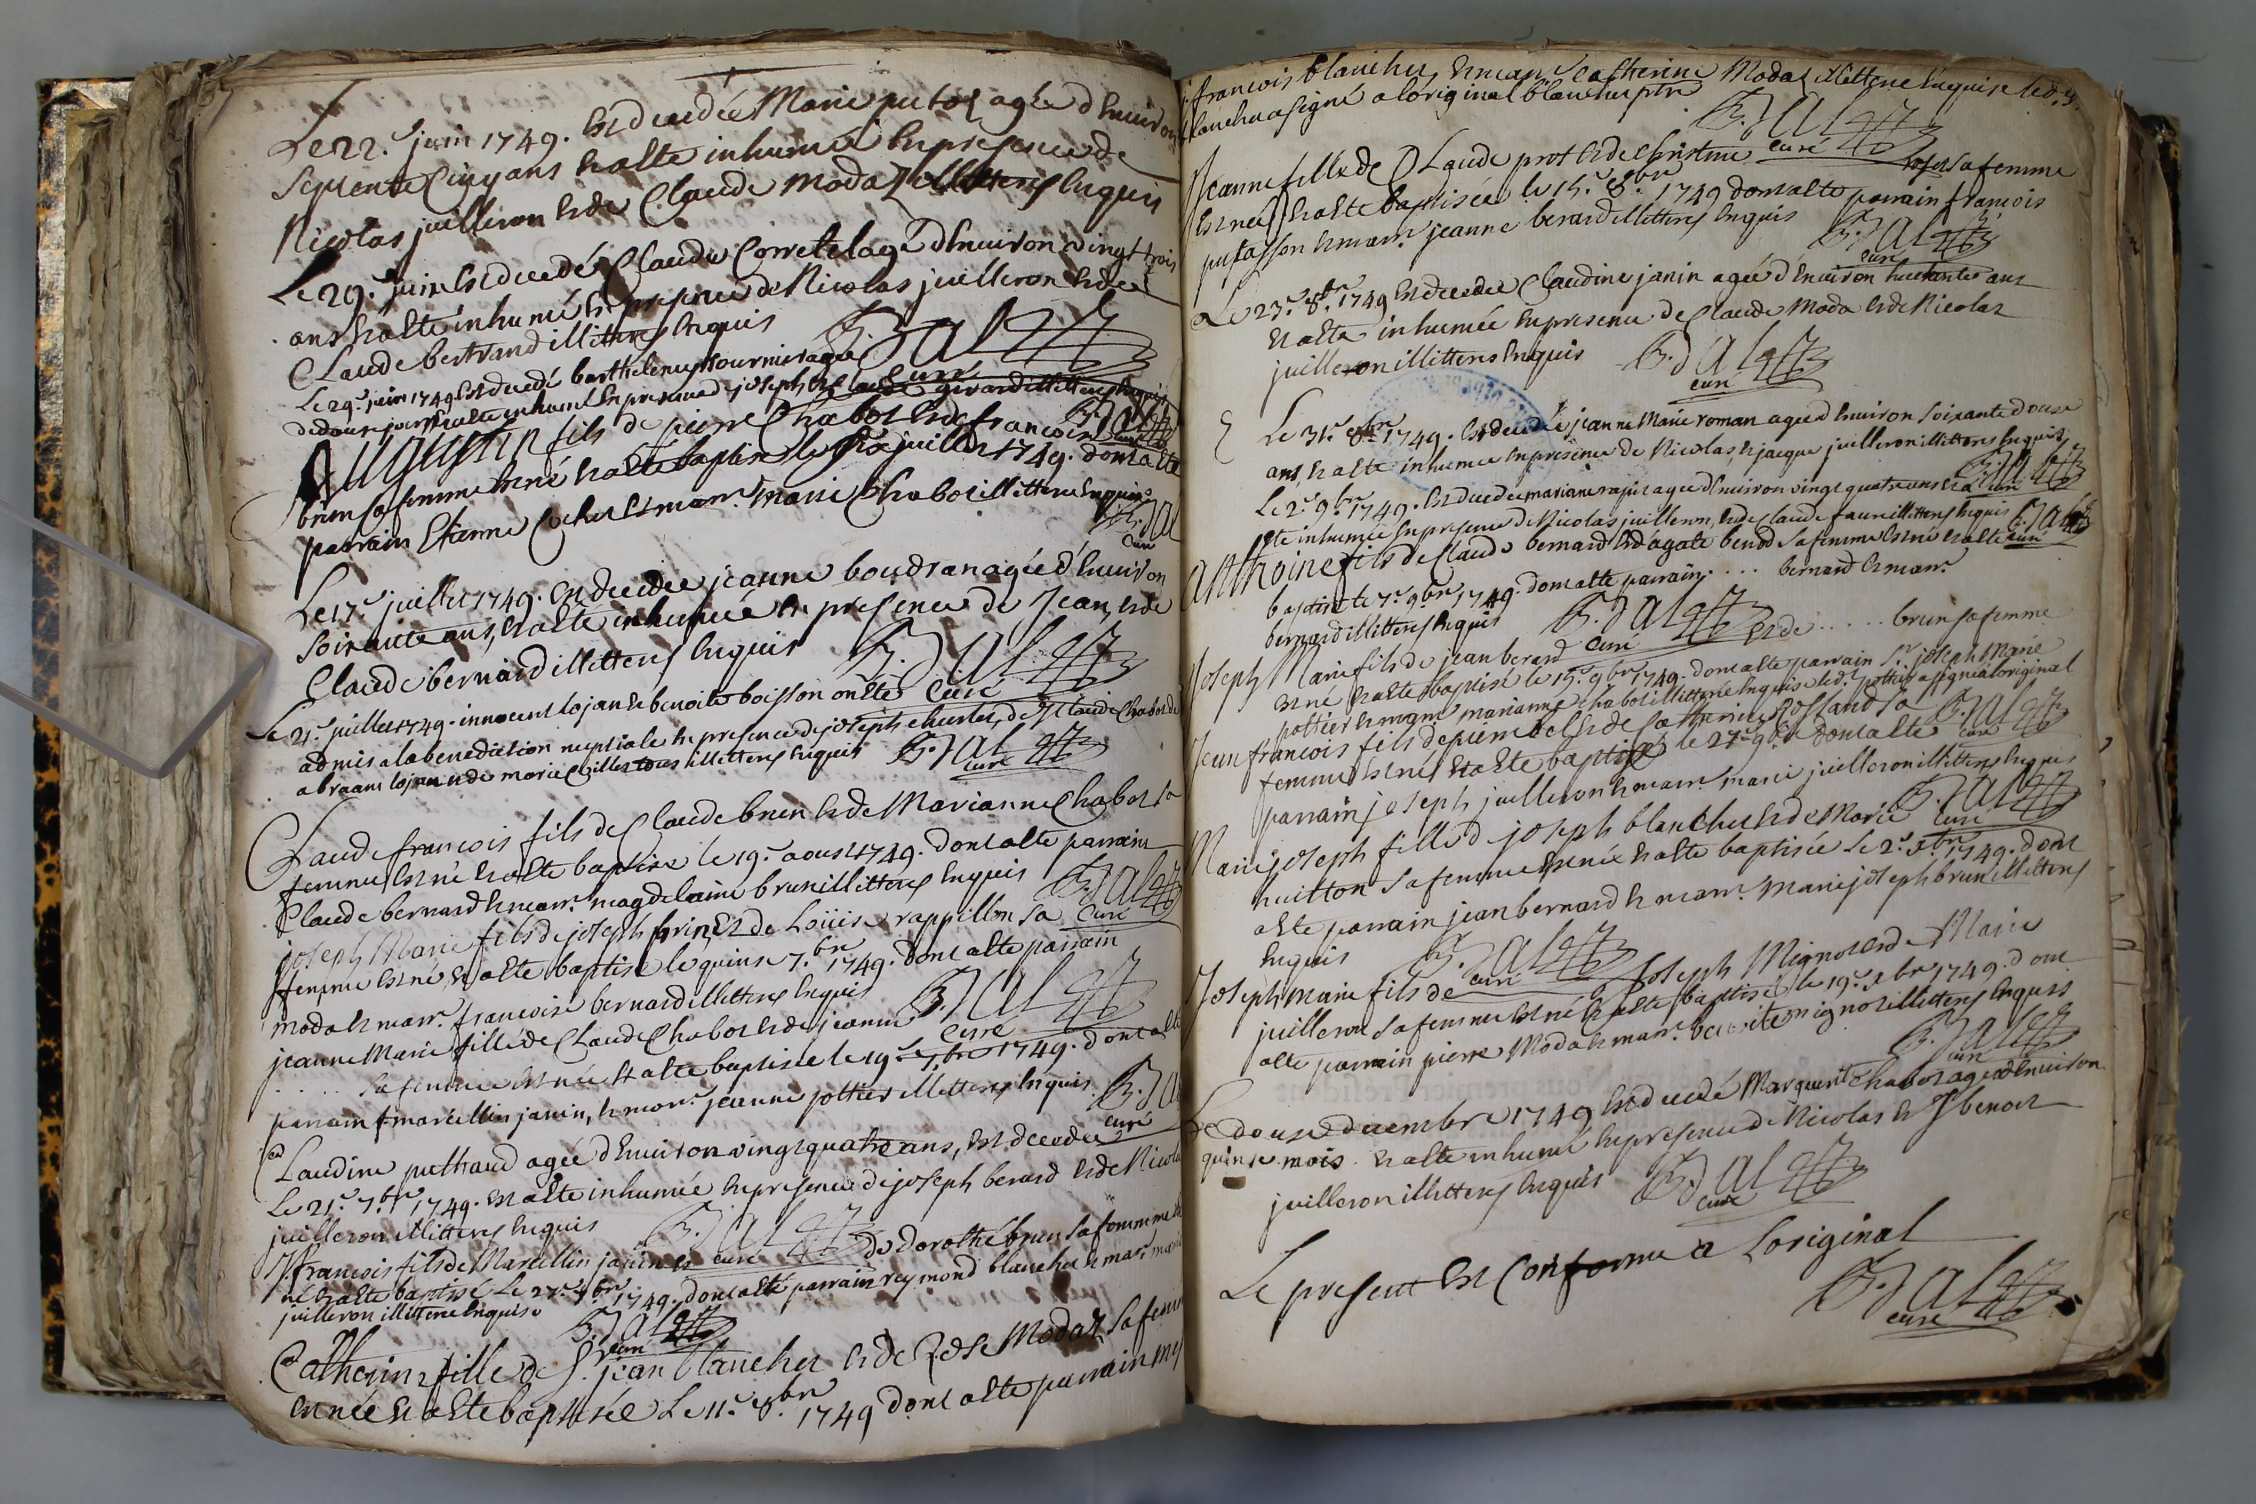 Le 22.e juin 1749. Est decedée Marie putod agée d'Environ
septente Cinq ans Et a Eté inhumée En presence de
Nicolas juilleron Et de Claude Modaz illitterés Enquis
Le 29.e juin Est decedé Claude Corretelage d'Environ vingt trois
ans Et a Eté inhumé En presence de Nicolas juilleron Et de
Claude bertrand illitterés Enquis B. Jal
curé
Le 29.e juin 1749 Est decedé barthelemy agé
de douse jours Et a Eté inhumé En presence de joseph Et Claude girard illitterés Enquis
B. Jal curé
Augustin fils de pierre Chabot Et de francoise
brun sa femme Est né Et a Eté baptisé le juillet 1749. dont a Eté
parrain Etienne Cochet Et marr.e marie Chabot illitterée Enquise
B. Jal
curé
Le 17.e juillet 1749. Est decedée jeanne boudran agée d'Environ
soixante ans, Et a Eté inhumée En presence de Jean, Et de
Claude bernard illitterés Enquis B. Jal
curé
Le 21.e juillet 1749. innocent lojan Et benoite boisson ont Eté
admis a la benediction nuptiale En presence de joseph de Claude Chabot de
abraam lojan Et de marie tous illitterés Enquis B. Jal
curé
Claude francois fils de Claude brun Et de Marianne Chabot sa
femme Est né Et a Eté baptisé le 19.e aoust 1749. dont a Eté parrain
Claude bernard Et marr.e magdelaine brun illitterés Enquis B. Jal
curé
joseph Marie fils de joseph brun Et de Loüise rappillon sa
femme Est né, Et a Eté baptisé le quinse 7.bre 1749. dont a Eté parrain
moda Et marr.e francoise bernard illitterés Enquis B. Jal
curé
jeanne Marie fille de Claude Chabot Et de jeanne
..... sa femme Est née Et a Eté baptisée le 19.e 7.bre 1749. dont a Eté
parrain marcellin janin, Et marr.e jeanne pottier illitterés Enquis B. Jal
curé
Claudine puthaud agée d'Environ vingt quatre ans, Est decedée
Le 21.e 7.bre 1749. Et a Eté inhumée En presence de joseph berard Et de Nicolas
juilleron illitterés Enquis B. Jal
curé
J. francois fils de Marcellin janin Et de dorothé brun sa femme Est
né Et a Eté baptisé Le 27.e 7.bre 1749. dont a Eté parrain reymond blanchet Et marr.e marie
juilleron illitterée Enquise B. Jal
curé
Catherine fille de S.r jean blanchet Et de Rose Modaz sa femme
Est née Et a Eté baptisée Le 11.e 8.bre 1749 dont a Eté parrain
francois blanchet Et marr.e Catherine Modaz illitterée Enquise led. s.r
blanchet a signé a loriginal blanchet ptre B. Jal
curé
Jeanne fille de Claude prot Et de Christine sa femme
Est née Et a Eté baptisée le 15.e 8.bre 1749 dont a Eté parrain francois
putasson Et marr.e jeanne berard illitterés Enquis B. Jal
curé
Le 23.e 8.bre 1749 Est decedée Claudine janin agée d'Environ huitante ans
Et a Eté inhumée En presence de Claude Moda Et de Nicolas
juilleron illitterés Enquis B. Jal
curé
Le 31.e 8.bre 1749. Est decedée jeanne Marie roman agée d'Environ soixante douse
ans, Et a Eté inhumée En presence de Nicolas, Et jacque juilleron illitterés Enquis
B. Jal curé
Le 2.e 9.bre 1749. Est decedée mariane agée d'Environ vingt quatre ans Et a
Eté inhumée En presence de Nicolas juilleron, Et de Claude faure illitterés Enquis B. Jal
curé
Anthoine fils de Claude bernard Et d'agate benod sa femme Est né Et a Eté
baptisé le 7.e 9.bre 1749. dont a Eté parrain .... bernard Et marr.e
bernard illitterés Enquis B. Jal
curé
Joseph Marie fils de jean berard Et de ..... brun sa femme
Est né Et a Eté baptisé le 15.e 9.bre 1749. dont a Eté parrain s.r joseph Marie
pottier Et marr.e marianne Chabot illitterée Enquise led. s.r pottier a signé a loriginal
B. Jal curé
Jean francois fils de pierre bel Et de Catherine Rossand sa
femme Est né Et a Eté baptisé le 27.e 9.bre dont a Eté
parrain joseph juilleron Et marr.e marie juilleron illitterés Enquis
B. Jal curé
Marie joseph fille de joseph blanchet Et de Marie
huitton sa femme Est née Et a Eté baptisée Le 2.e x.bre 1749. dont
a Eté parrain jean bernard Et marr.e Marie joseph brun illitterés
Enquis B. Jal
curé
Joseph marie fils de joseph Mignot Et de Marie
juilleron sa femme Est né Et a Eté baptisé le 19.e x.bre 1749. dont
a Eté parrain pierre Moda Et marr.e benoite mignot illitterés Enquis
B. Jal
curé
Le douse decembre 1749 Est decedé Marguerit Chabot agé d'Environ
quinse mois. Et a Eté inhumé En presence de Nicolas Et J benoit
juilleron illitterés Enquis B. Jal
curé
Le present Est Conforme a Loriginal
B. Jal
curé